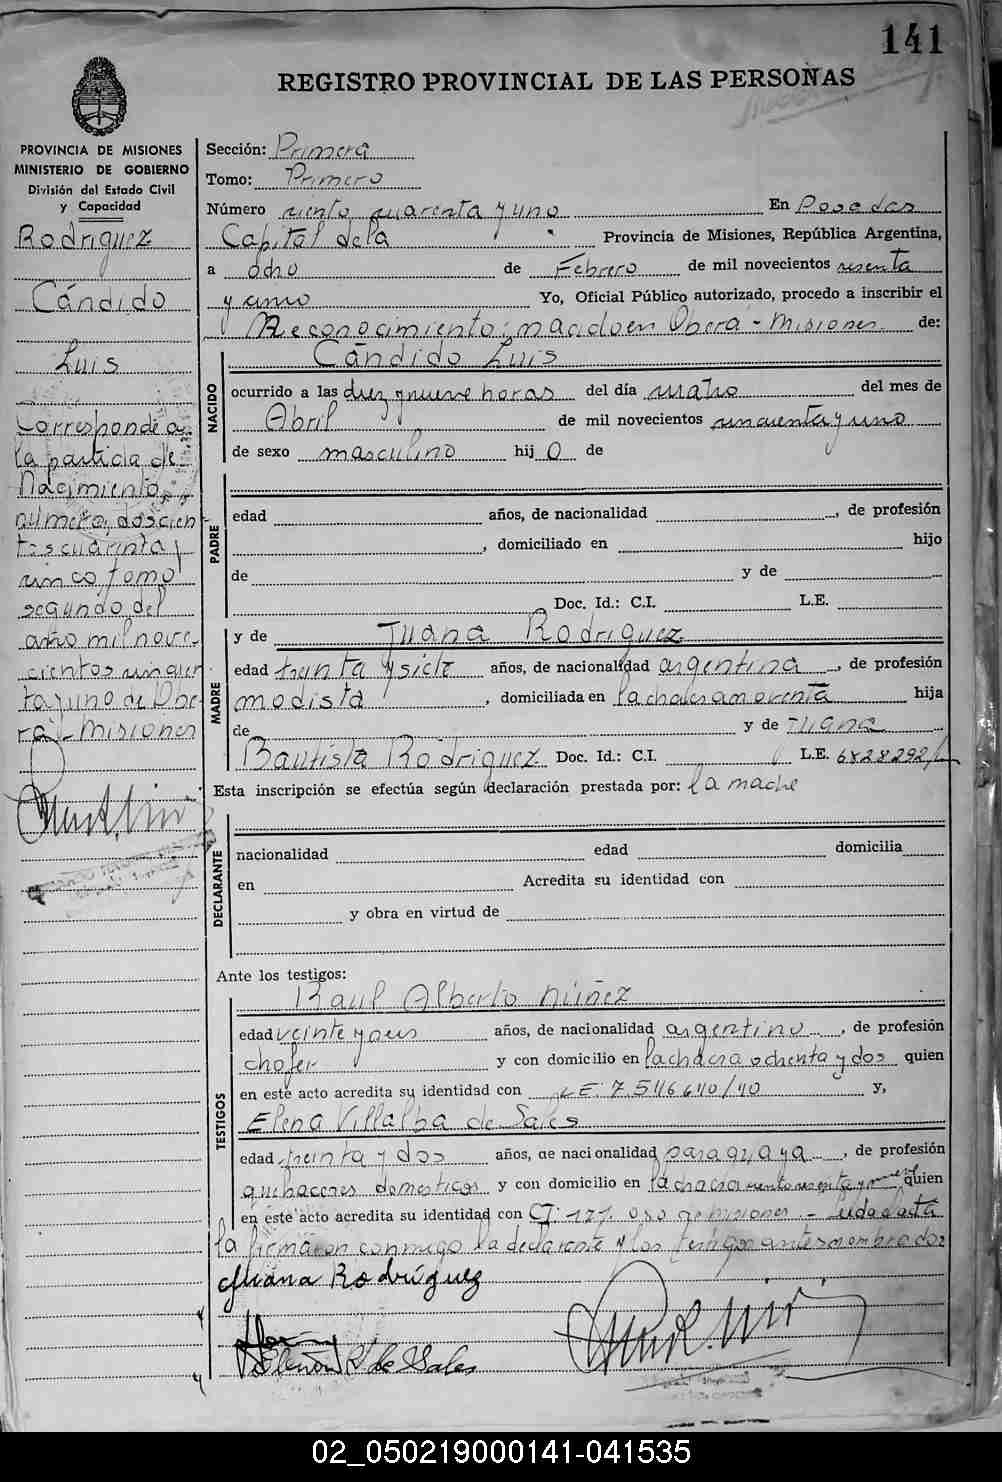 141
REGISTRO PROVINCIAL DE LAS PERSONAS
PROVINCIA DE MISIONES
MINISTERIO DE GOBIERNO
División del Estado Civil
y Capacidad
Rodriguez
Cándido
Luis
Corresponde a
la partida de
Nacimiento
número, doscien
tos cuarenta y
cinco, tomo
segundo del
año mil nove-
cientos cincuen
ta y uno de Obe-
rá - Misiones
Sección: Primera
Tomo: Primero
Número ciento cuarenta y uno En Posadas
Capital de la Provincia de Misiones, República Argentina,
a ocho de Febrero de mil novecientos sesenta
y uno Yo, Oficial Público autorizado, procedo a inscribir el
Reconocimiento; nacido en Obera - Misiones de:
NACIDO
Cándido Luis
ocurrido a las diez y nueve horas del día cuatro del mes de
Abril de mil novecientos cincuenta y uno
de sexo masculino hij o de
PADRE
edad años, de nacionalidad , de profesión
, domiciliado en hijo
de y de
Doc. Id.: C.I. L.E.
MADRE
y de Juana Rodriguez
edad treinta y siete años, de nacionalidad argentina , de profesión
modista , domiciliada en la chacra noventa hija
de y de Juana
Bautista Rodriguez Doc. Id.: C.I. L.E. 6828292
Esta inscripción se efectúa según declaración prestada por: la madre
DECLARANTE
nacionalidad edad domicilia
en Acredita su identidad con
y obra en virtud de
Ante los testigos:
TESTIGOS
Raul Alberto Núñez
edad veinte y seis años, de nacionalidad argentino , de profesión
chofer y con domicilio en la chacra ochenta y dos quien
en este acto acredita su identidad con LE. 7.546640/40 y,
Elena Villalba de Sales
edad treinta y dos años, de nacionalidad paraguaya , de profesión
quehaceres domesticos y con domicilio en la chacra ciento sesenta y quien
en este acto acredita su identidad con CI. 127.030 de misiones. - Leida el acta
la firmaron conmigo la declarante y los testigos antes nombrados
Juana Rodríguez
Elena V de Sales
02_050219000141-041535